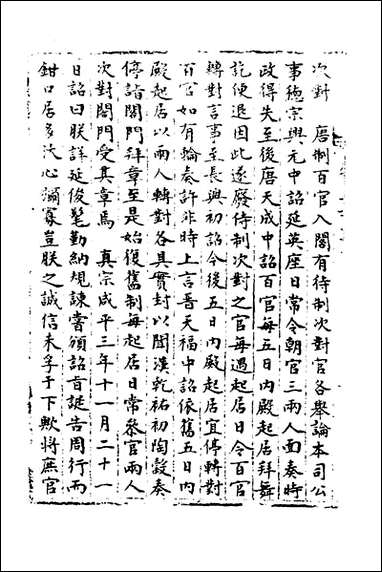 次對　唐制百官入閣有待制次對官各舉論本司公
事德宗興元中詔延英座日常令朝官三兩人面奏時
政得失至後唐天成中詔百官每五日內殿起居拜舞
訖便退因此遂廢待制次對之官每遇起居日令百官
轉對言事至長興初詔今後五日內殿起居宜停轉對
百官如有輪奏許非時上言晉天福中詔依舊五日內
殿起居以兩人轉對各具實封以聞漢乾祐初陶穀奏
停詣閤門拜章至是始復舊制每起居日常參官兩人
次對閤門受其章焉　真宗咸平三年十一月二十一
日詔曰朕詳延後髦勤納規諫嘗頒詔旨誕告周行而
鉗口居多沃心彌寡豈朕之誠信未孚于下歟將庶官